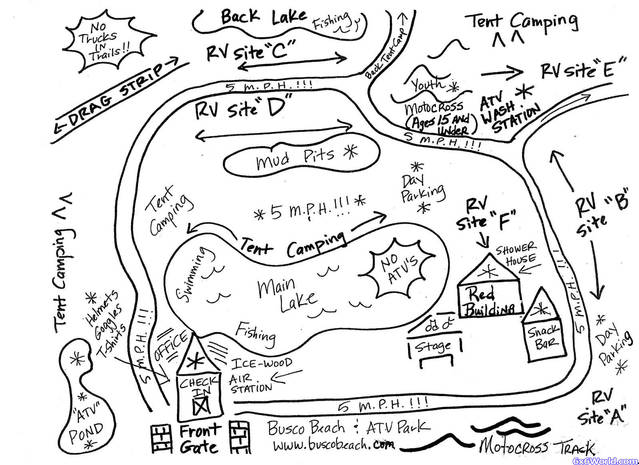 No
Trucks
in
Trails!!
Back Lake
Fishing
RV Site "C"
Back Tent Camp
Tent Camping
RV Site "E"
← DRAG STRIP →
5 M.P.H.!!!
RV Site "D"
Youth *
Motocross
(Ages 15 and
under)
ATV *
WASH
STATION
5 M.P.H.!!!
Mud Pits *
* Day
Parking
*
Tent
Camping
* 5 M.P.H.!!! *
Tent Camping
RV
Site "F"
RV "B"
Site
Tent Camping
Swimming
Main
Lake
Fishing
NO
ATV'S
SHOWER
HOUSE
*
Red
Building
*
Snack
BAR
Stage
5 M.P.H.!!!
* Day
Parking
*
RV
Site "A"
* Helmets
Goggles
T-shirts
5 M.P.H.!!!
OFFICE
*
CHECK
IN
ICE-WOOD
AIR
STATION
*
*
"ATV"
POND
*
5 M.P.H.!!!
Front
Gate
Busco Beach & ATV Park
www.buscobeach.com
Motocross Track
6x6World.com